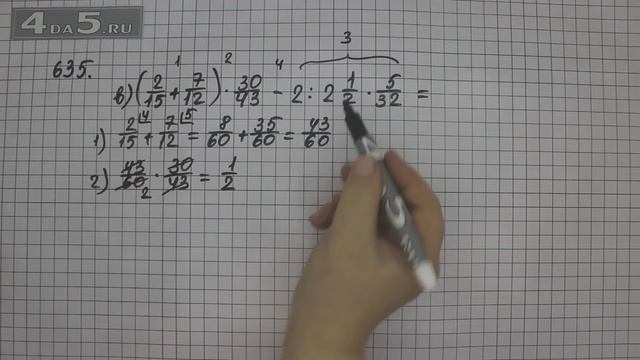 4DA5.RU
635.
1 2 4 3
в) (2/15 + 7/12) · 30/43 - 2 : 2 1/2 · 5/32 =
1) 2/15 ⌊4 + 7/12 ⌊5 = 8/60 + 35/60 = 43/60
2) 43/60 · 30/43 = 1/2
2